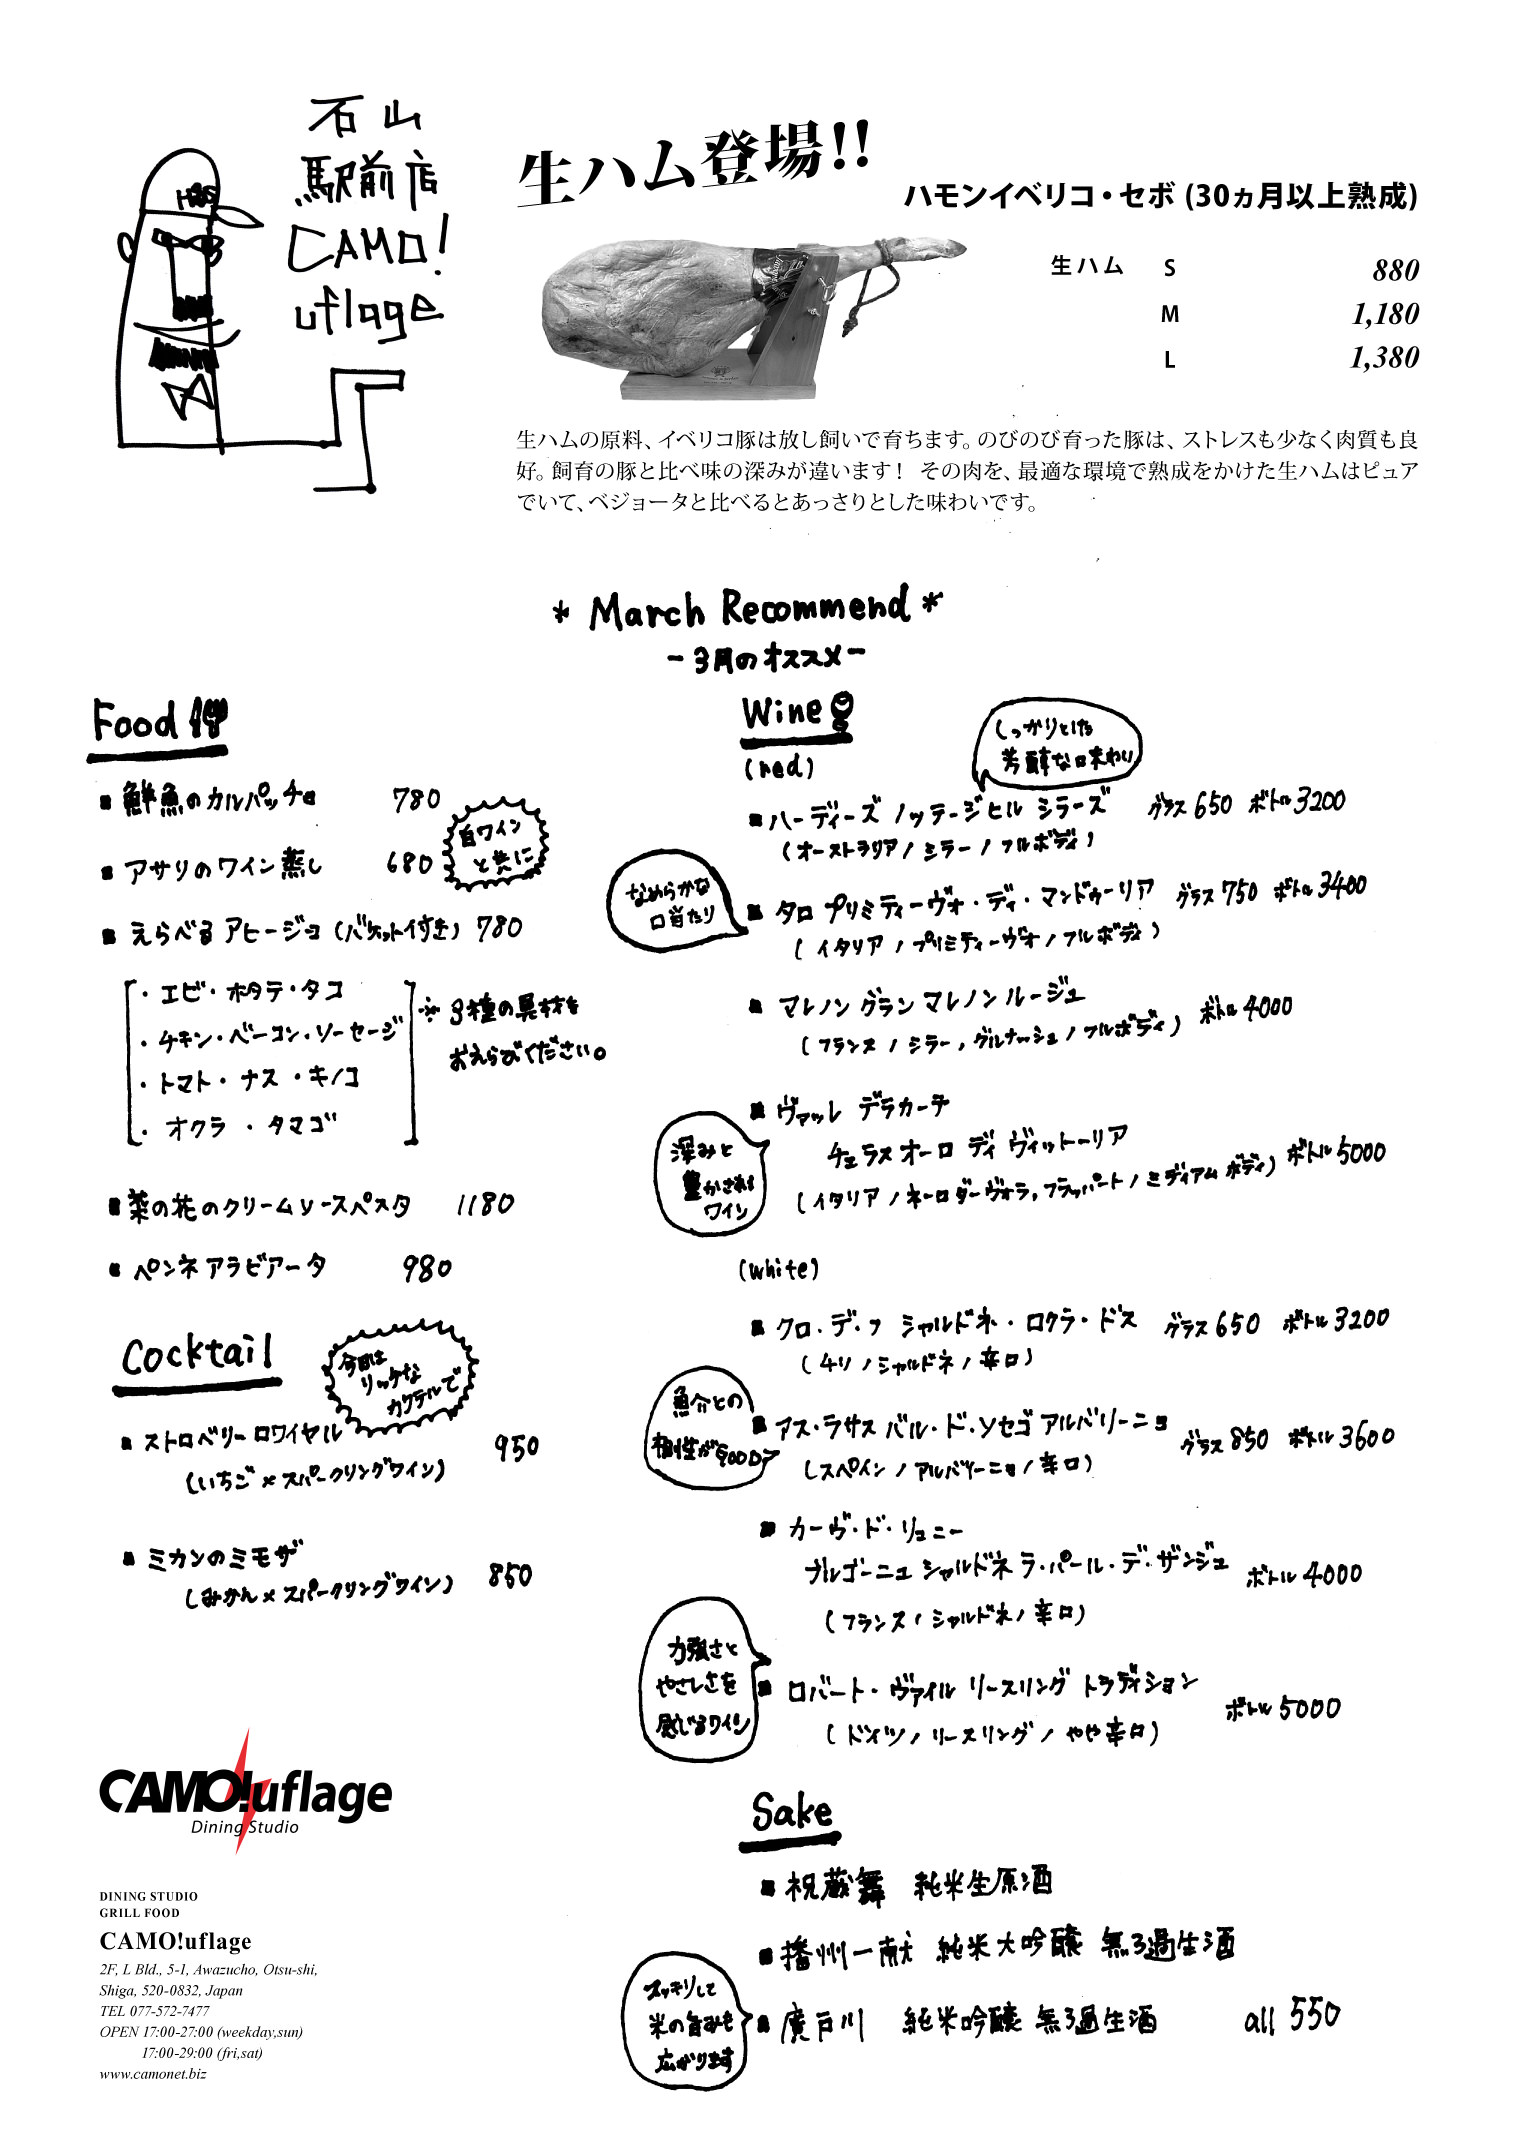 石山
駅前店
CAMO!
uflage
H&S
生ハム登場!!
ハモンイベリコ・セボ (30ヵ月以上熟成)
生ハム S 880
M 1,180
L 1,380
生ハムの原料、イベリコ豚は放し飼いで育ちます。のびのび育った豚は、ストレスも少なく肉質も良
好。飼育の豚と比べ味の深みが違います! その肉を、最適な環境で熟成をかけた生ハムはピュア
でいて、ベジョータと比べるとあっさりとした味わいです。
* March Recommend *
-3月のオススメ-
Food
■ 鮮魚のカルパッチョ 780
■ アサリのワイン蒸し 680
白ワイン
と共に
■ えらべるアヒージョ (バケット付き) 780
・エビ・ホタテ・タコ
・チキン・ベーコン・ソーセージ
・トマト・ナス・キノコ
・オクラ・タマゴ
※3種の具材を
おえらびください。
■ 菜の花のクリームソースパスタ 1180
■ ペンネアラビアータ 980
Cocktail
今日は
リッチな
カクテルで
■ ストロベリーロワイヤル 950
(いちご×スパークリングワイン)
■ ミカンのミモザ
(みかん×スパークリングワイン) 850
Wine
(red)
しっかりとした
芳醇な味わい
■ ハーディーズ ノッテージヒル シラーズ グラス650 ボトル3200
(オーストラリア/シラー/フルボディ)
なめらかな
口当たり
■ タロ プリミティーヴォ・ディ・マンドゥーリア グラス750 ボトル3400
(イタリア/プリミティーヴォ/フルボディ)
■ マレノン グラン マレノン ルージュ ボトル4000
(フランス/シラー,グルナッシュ/フルボディ)
深みと
豊かさある
ワイン
■ ヴァッレ デラカーテ
チェラスオーロ ディ ヴィットーリア ボトル5000
(イタリア/ネーロダーヴォラ,フラッパート/ミディアムボディ)
(white)
■ クロ・デ・フ シャルドネ・ロクラ・ドス グラス650 ボトル3200
(チリ/シャルドネ/辛口)
魚介との
相性がGOOD
■ アス・ラサス バル・ド・ソセゴ アルバリーニョ グラス850 ボトル3600
(スペイン/アルバリーニョ/辛口)
■ カーヴ・ド・リュニー
ブルゴーニュ シャルドネ ラ・パール・デ・ザンジュ ボトル4000
(フランス/シャルドネ/辛口)
力強さと
やさしさを
感じるワイン
■ ロバート・ヴァイル リースリング トラディション ボトル5000
(ドイツ/リースリング/やや辛口)
Sake
■ 祝蔵舞 純米生原酒
■ 播州一献 純米大吟醸 無ろ過生酒
スッキリして
米の旨みも
広がります
■ 廣戸川 純米吟醸 無ろ過生酒 all 550
CAMO!uflage
Dining Studio
DINING STUDIO
GRILL FOOD
CAMO!uflage
2F, L Bld., 5-1, Awazucho, Otsu-shi,
Shiga, 520-0832, Japan
TEL 077-572-7477
OPEN 17:00-27:00 (weekday,sun)
17:00-29:00 (fri,sat)
www.camonet.biz